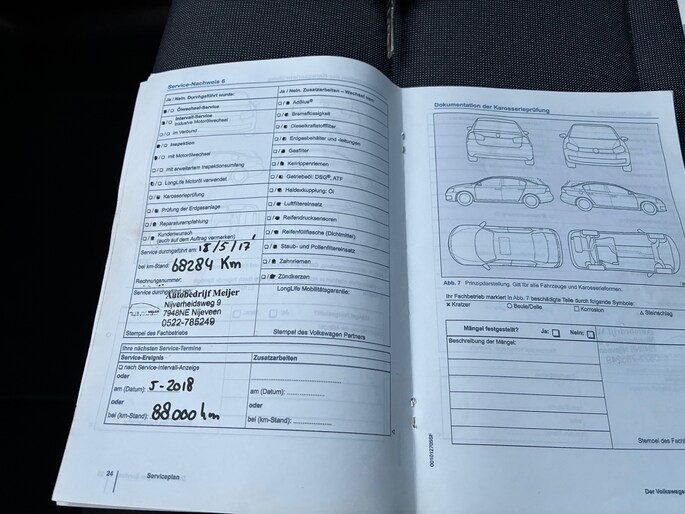 Service-Nachweis 6
Ja / Nein. Durchgeführt wurde:
Ölwechsel-Service
Intervall-Service
inklusive Motorölwechsel
im Verbund
Inspektion
mit Motorölwechsel
mit erweitertem Inspektionsumfang
LongLife Motoröl verwendet
Karosserieprüfung
Prüfung der Erdgasanlage
Reparaturempfehlung
Kundenwunsch
(auch auf dem Auftrag vermerken)
Service durchgeführt am: 18/5/17
bei km-Stand: 68284 Km
Rechnungsnummer:
Service durchgeführt von:
Autobedrijf Meijer
Nijverheidsweg 9
7948NE Nijeveen
0522-785249
Stempel des Fachbetriebs
Ja / Nein. Zusatzarbeiten – Wechsel von:
AdBlue®
Bremsflüssigkeit
Dieselkraftstofffilter
Erdgasbehälter und -leitungen
Gasfilter
Keilrippenriemen
Getriebeöl: DSG®, ATF
Haldexkupplung: Öl
Luftfiltereinsatz
Reifendrucksensoren
Reifenfüllflasche (Dichtmittel)
Staub- und Pollenfiltereinsatz
Zahnriemen
Zündkerzen
LongLife Mobilitätsgarantie:
Stempel des Volkswagen Partners
Ihre nächsten Service-Termine
Service-Ereignis
Zusatzarbeiten
nach Service-Intervall-Anzeige
oder
am (Datum): 5-2018
oder
bei (km-Stand): 88000 km
am (Datum):
oder
bei (km-Stand):
24
Serviceplan
Dokumentation der Karosserieprüfung
Abb. 7 Prinzipdarstellung. Gilt für alle Fahrzeuge und Karosserieformen.
Ihr Fachbetrieb markiert in Abb. 7 beschädigte Teile durch folgende Symbole:
× Kratzer
○ Beule/Delle
□ Korrosion
△ Steinschlag
Mängel festgestellt?
Ja:
Nein:
Beschreibung der Mängel:
Stempel des Fachb
Der Volkswagen